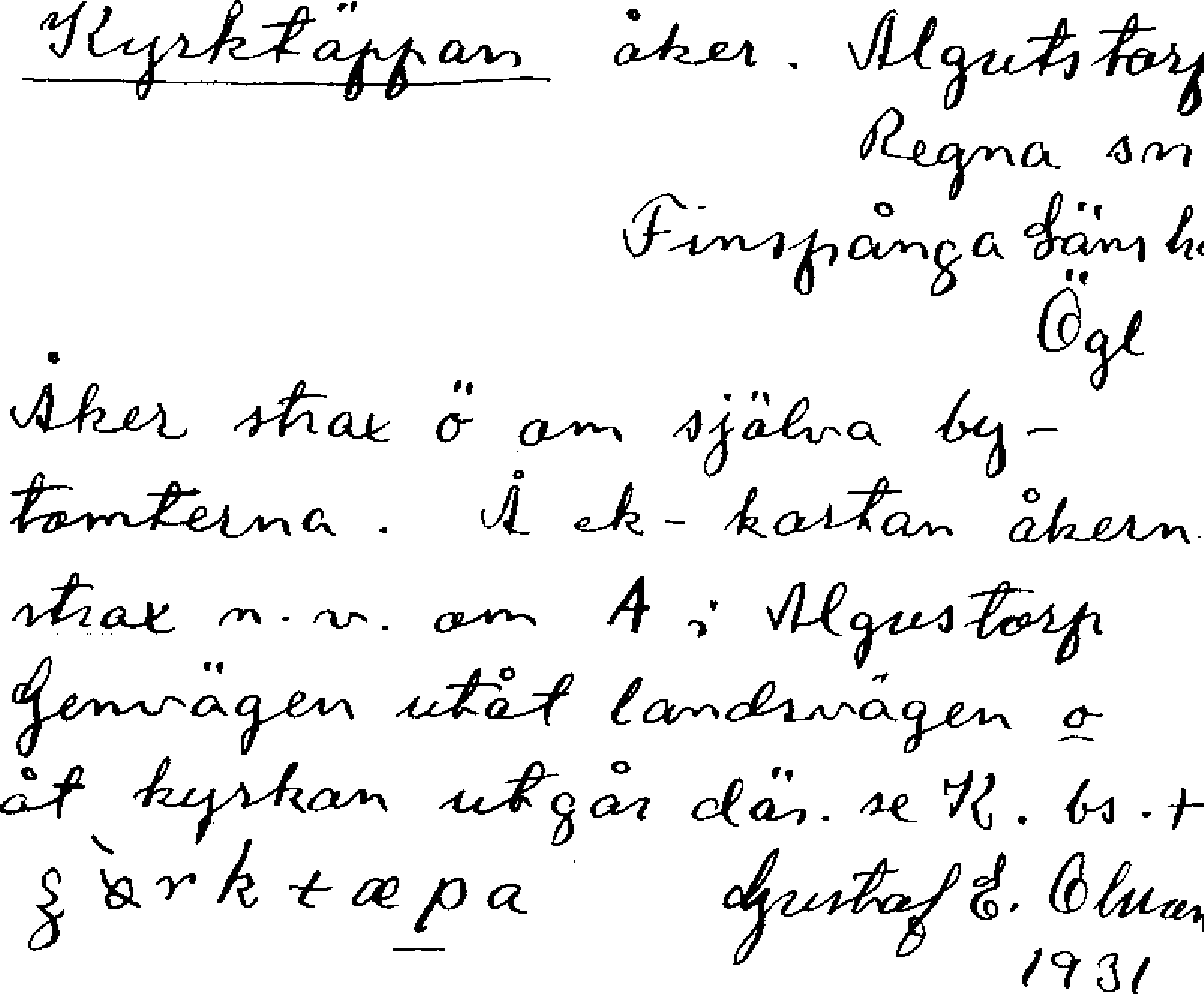 Kyrktäppan åker. Algutstorp
Regna sn
Finspånga Läns
Ögl
Åker strax ö om själva by-
tomterna. Å ek-kartan åkern
strax n.v. om A i Algustorp
Genvägen utåt landsvägen o
åt kyrkan utgår där. se K. bs. +
Gustaf E.
1931